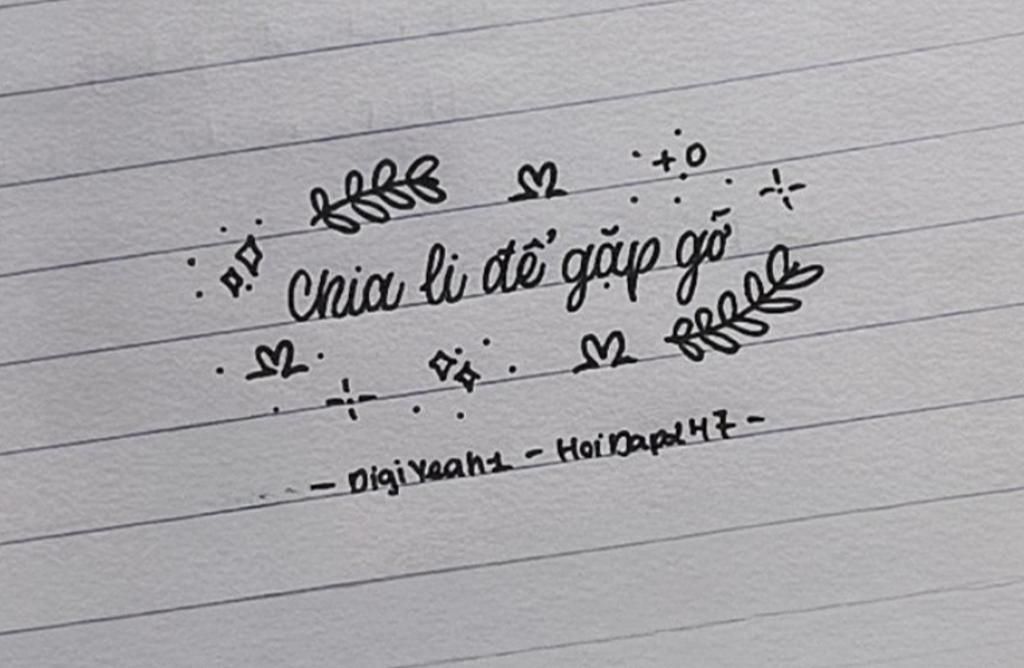 Chia li để gặp gỡ
- DigiYeah1 - HoiDap247 -